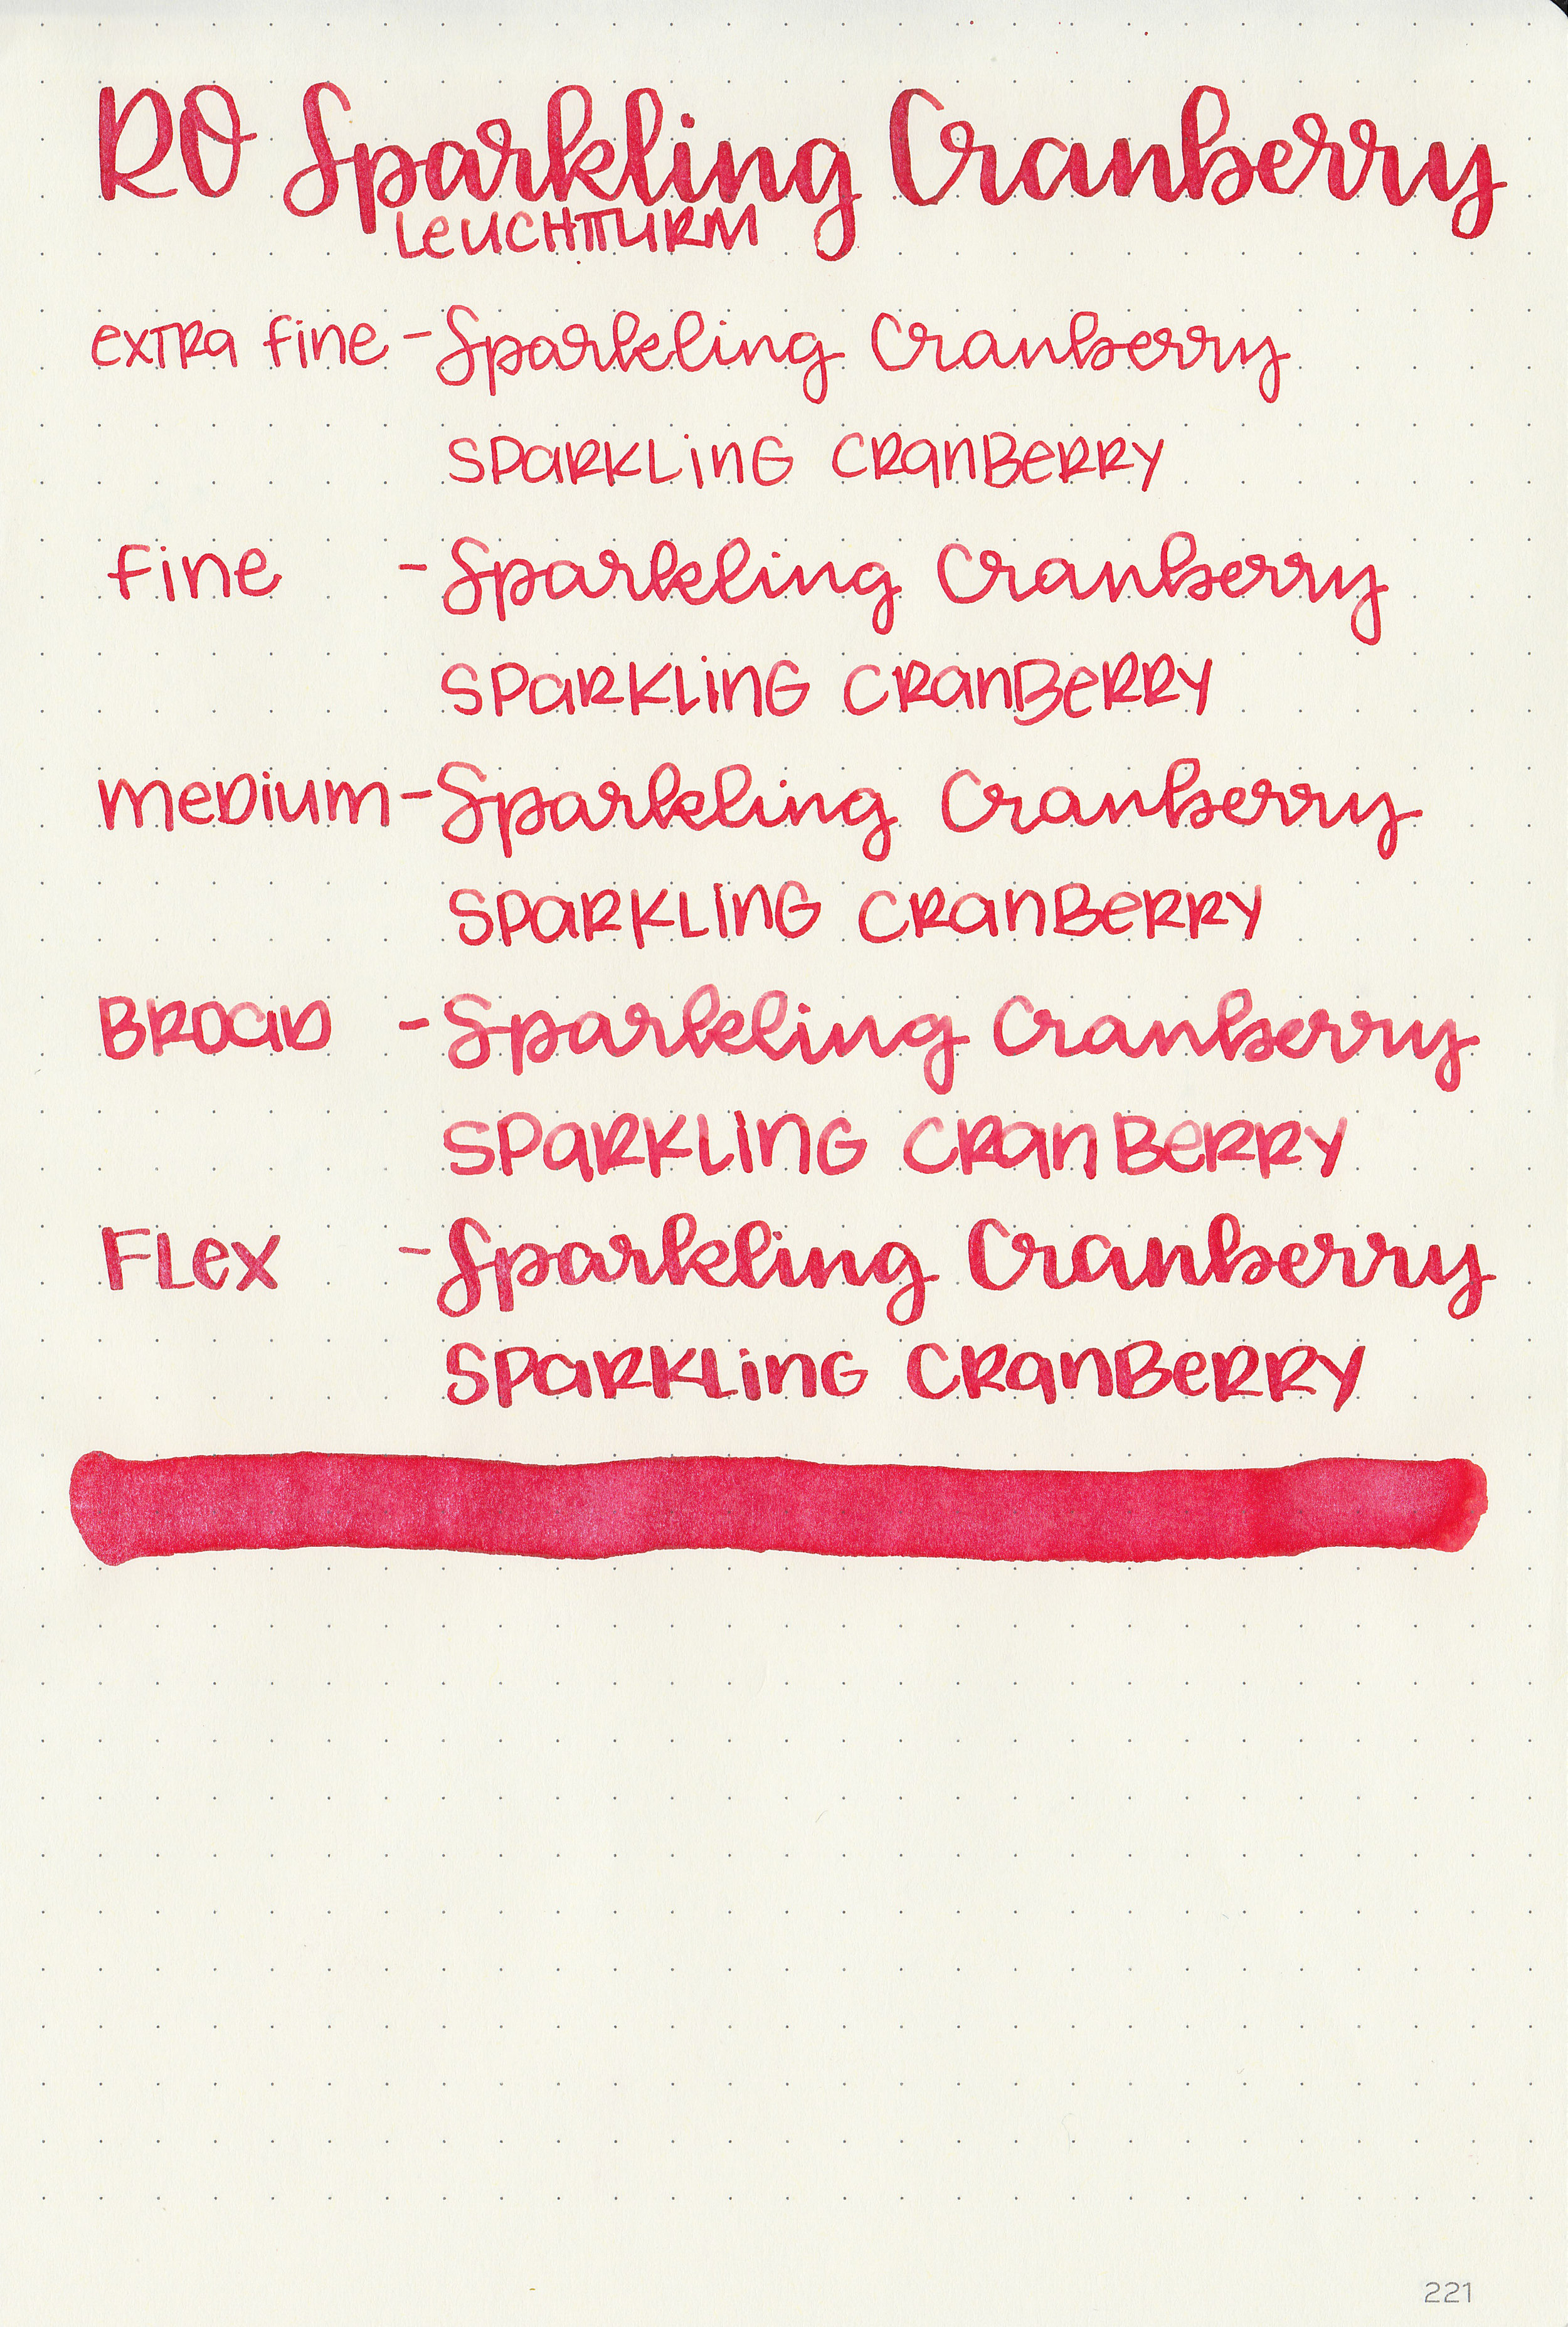 RO Sparkling Cranberry
LEUCHTTURM
EXTRA FINE - Sparkling Cranberry
SPARKLING CRANBERRY
FINE - Sparkling Cranberry
SPARKLING CRANBERRY
MEDIUM - Sparkling Cranberry
SPARKLING CRANBERRY
BROAD - Sparkling Cranberry
SPARKLING CRANBERRY
FLEX - Sparkling Cranberry
SPARKLING CRANBERRY
221